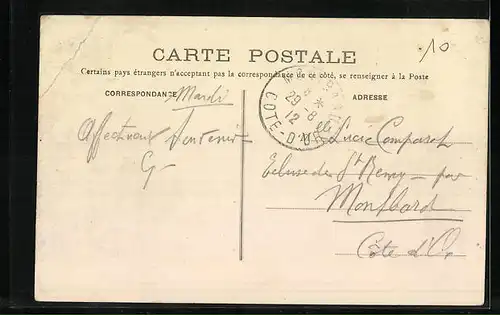 10
CARTE POSTALE
Certains pays étrangers n'acceptant pas la correspondance de ce côté, se renseigner à la Poste
CORRESPONDANCE
ADRESSE
Mardi
29-8
12
COTE-D'OR
Affectueux Souvenir
G-
Melle Lucie
Ecluse de St Remy - par
Montbard
Côte d'Or